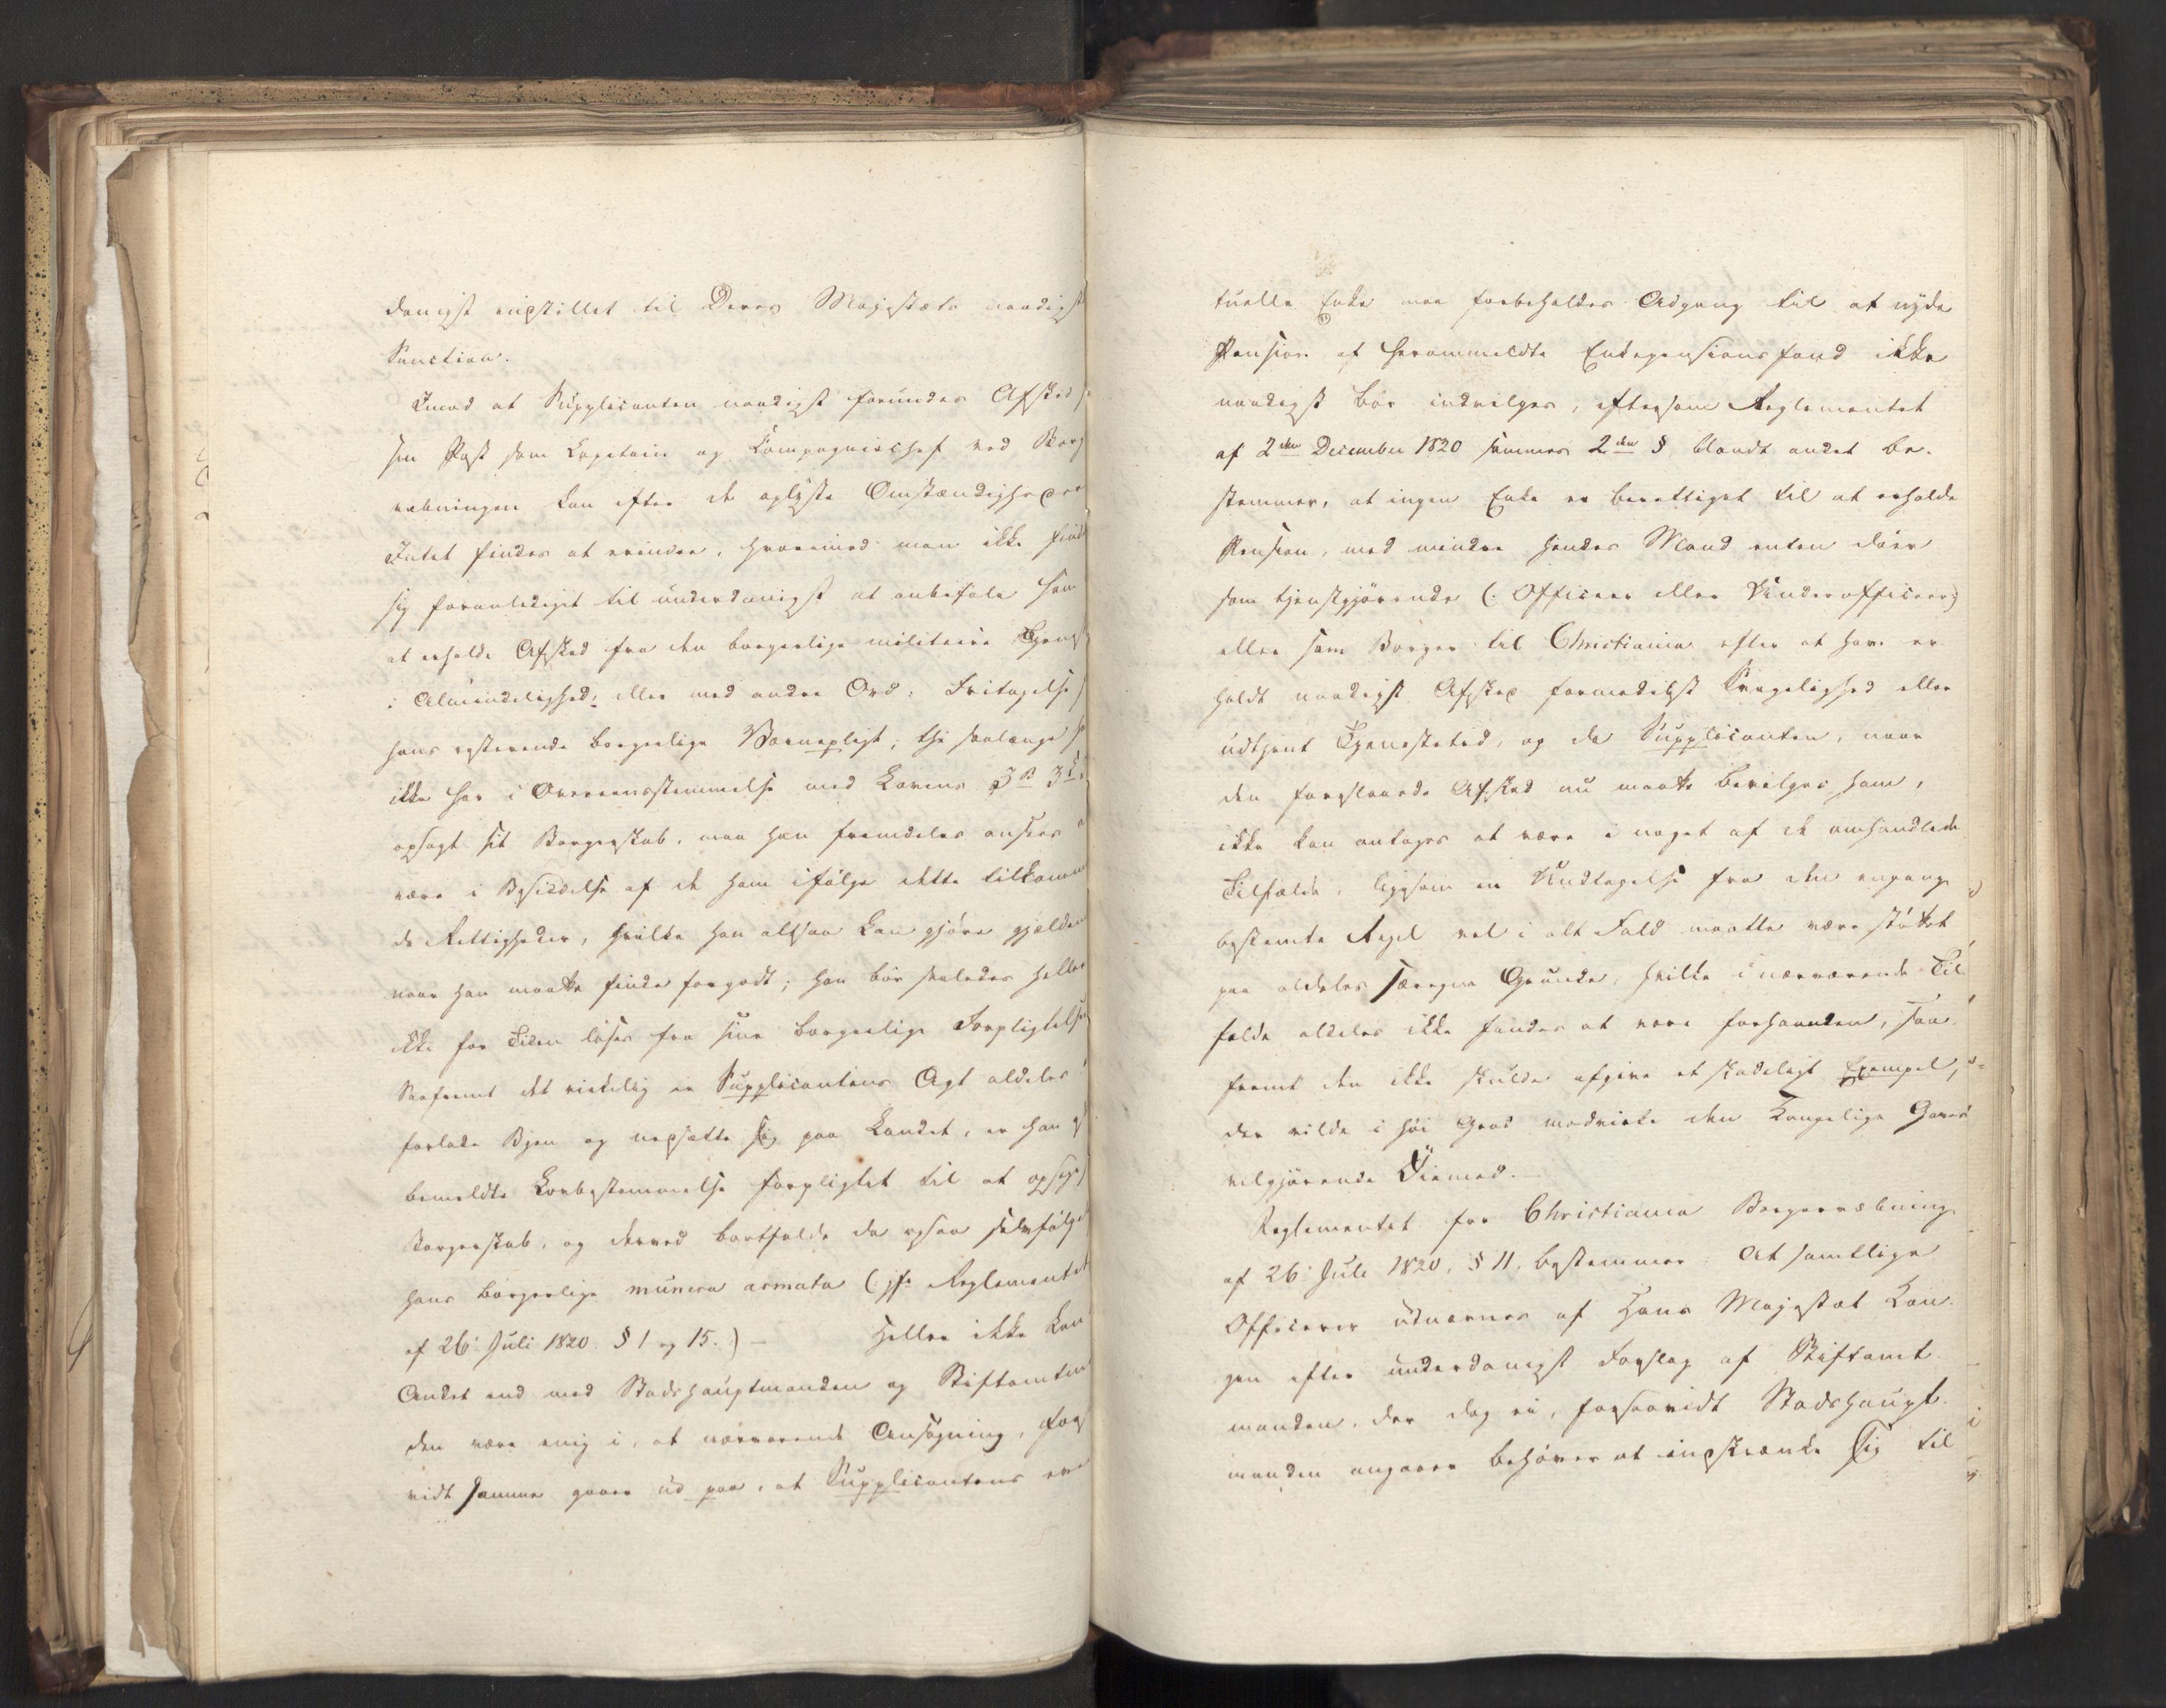 danigst indstillet til Deres Majestæts naadigst
Sanction.
Imod at Supplicanten naadigst forundes Afsked
sin Post som Capitain og Compagniechef ved Borg
væbningen kan efter de oplyste Omstændigheder
Intet findes at erindre, hvorimod man ikke find
sig foranlediget til underdanigst at anbefale ham
at erholde Afsked fra den borgerlige militaire Tjenest
i Almindelighed, eller med andre Ord: Fritagelse
hans resterende borgerlige Værnepligt; thi saalænge
ikke har i Overeensstemmelse med Lovens 3 B 3 C
opsagt sit Borgerskab, maa han fremdeles ansees
være i Besiddelse af de ham ifølge dette tilkomm
de Rettigheder, hvilke han altsaa kan gjøre gjælden
naar han maatte finde forgodt; han bør saaledes heller
ikke for Tiden løses fra sine borgerlige Forpligtelser
Saafremt det virkelig er Supplicantens Agt aldeles
forlade Byen og nedsætte sig paa Landet, er han
bemeldte Lovbestemmelse forpligtet til at opsige
Borgerskab, og derved bortfalde da ogsaa selvfølge
hans borgerlige munera armata (: jfr Reglementet
af 26 Juli 1820 § 1 og 15.) – Heller ikke kan
Andet end med Stadshauptmanden og Stiftamtm
den være enig i, at nærværende Ansøgning, for
vidt samme gaaer ud paa, at Supplicantens eve
tuelle Enke maa forbeholdes Adgang til at nyde
Pension af herommeldte Enkepensionsfond ikke
naadigst bør indvilges, eftersom Reglementet
af 2den December 1820 sammes 2den § blandt andet be-
stemmer, at ingen Enke er berettiget til at erholde
Pension, med mindre hendes Mand enten døer
som tjenstgjørende (: Officeer eller Underofficeer:)
eller som Borger til Christiania efter at have er-
holdt naadigst Afsked formedelst Svagelighed eller
udtjent Tjenestetid, og da Supplicanten, naar
den foreslaaede Afsked nu maatte bevilges ham,
ikke kan antages at være i noget af de omhandlede
Tilfælde, ligesom en Undtagelse fra den engang
bestemte Regel vel i alt Fald maatte være støttet
paa aldeles særegne Grunde, hvilke i nærværende Til-
fælde aldeles ikke findes at være forhaanden, saa-
fremt den ikke skulde afgive et skadeligt Exempel,
der vilde i høi Grad modvirke den Kongelige Gaves
velgjørende Øiemed. –
Reglementet for Christiania Borgervæbning
af 26 Juli 1820, § 11, bestemmer: At samtlige
Officerer udnævnes af Hans Majestæt Kon-
gen efter underdanigst Forslag af Stiftamt-
manden, der dog ei, forsaavidt Stadshaupt-
manden angaaer behøver at indskrænke sig til